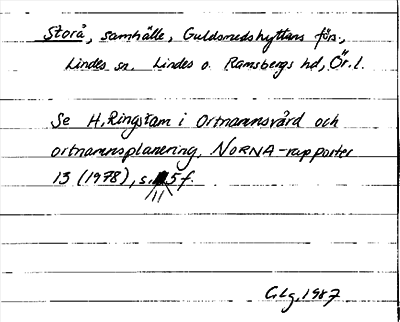 Storå, samhälle, Guldsmedshyttans förs.,
Lindes sn. Lindes o. Ramsbergs hd, Ör. l.
Se H. Ringstam i Ortnamnsvård och
ortnamnsplanering, NORNA-rapporter
13 (1978), s. 5 f.
Glg, 1987